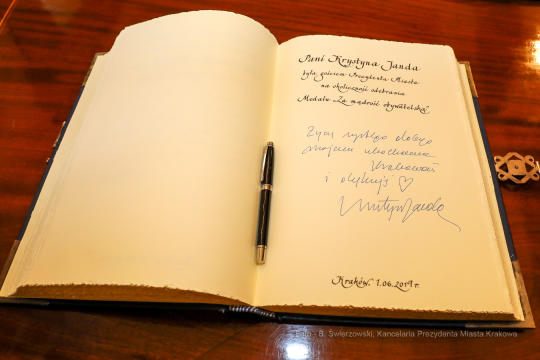 Pani Krystyna Janda
była gościem Prezydenta Miasta
na okoliczność odebrania
Medalu Za mądrość obywatelską
Życzę wszystkiego dobrego
mojemu ukochanemu
Krakowowi
i dziękuję ♡
Krystyna Janda
Kraków, 1.06.2019 r.
Foto - B. Świerzowski, Kancelaria Prezydenta Miasta Krakowa